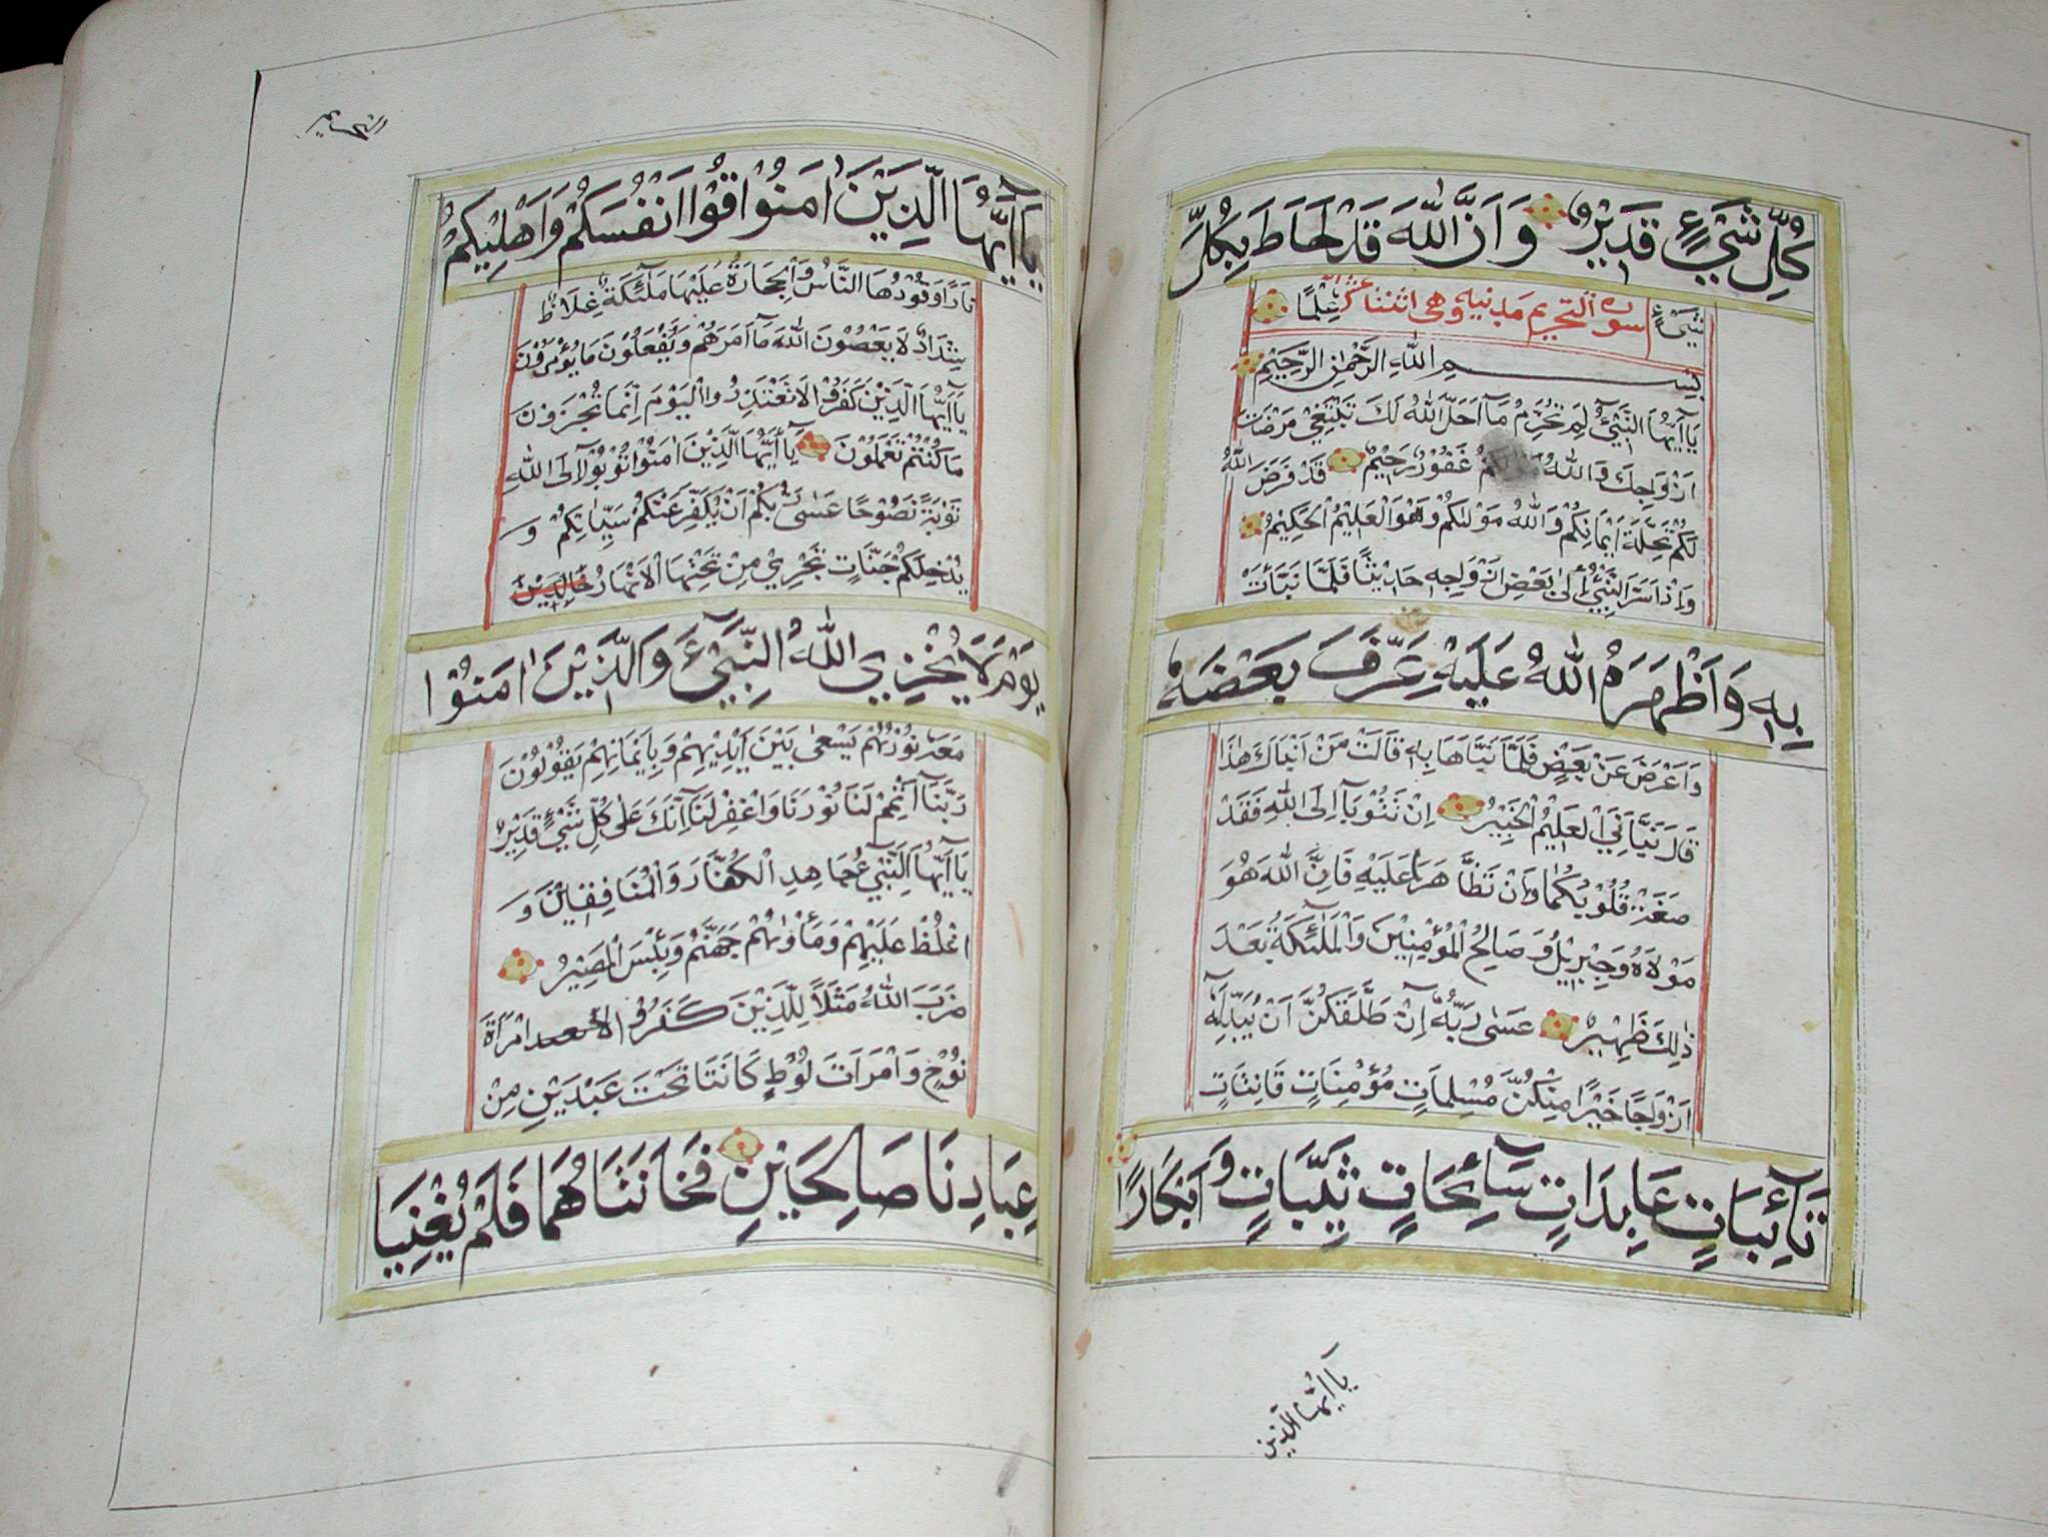 كُلِّ شَيْءٍ قَدِيْرٌ وَاَنَّ اللّٰهَ قَدْ اَحَاطَ بِكُلِّ
شَيْءٍ سورة التحريم مدنيه وهى اثنتا عشر عِلْمًا
بِسْــــــمِ اللّٰهِ الرَّحْمٰنِ الرَّحِيْمِ
يَآ اَيُّهَا النَّبِيُّ لِمَ تُحَرِّمُ مَآ اَحَلَّ اللّٰهُ لَكَ تَبْتَغِيْ مَرْضَاتَ
اَزْوَاجِكَ وَاللّٰهُ غَفُوْرٌ رَحِيْمٌ قَدْ فَرَضَ اللّٰهُ
لَكُمْ تَحِلَّةَ اَيْمَانِكُمْ وَاللّٰهُ مَوْلٰىكُمْ وَهُوَ الْعَلِيْمُ الْحَكِيْمُ
وَاِذْ اَسَرَّ النَّبِيُّ اِلٰى بَعْضِ اَزْوَاجِهٖ حَدِيْثًا فَلَمَّا نَبَّأَتْ
بِهٖ وَاَظْهَرَهُ اللّٰهُ عَلَيْهِ عَرَّفَ بَعْضَهٗ
وَاَعْرَضَ عَنْ بَعْضٍ فَلَمَّا نَبَّاَهَا بِهٖ قَالَتْ مَنْ اَنْبَاَكَ هٰذَا
قَالَ نَبَّاَنِيَ الْعَلِيْمُ الْخَبِيْرُ اِنْ تَتُوْبَآ اِلَى اللّٰهِ فَقَدْ
صَغَتْ قُلُوْبُكُمَا وَاِنْ تَظَّاهَرَا عَلَيْهِ فَاِنَّ اللّٰهَ هُوَ
مَوْلَاهُ وَجِبْرِيْلُ وَصَالِحُ الْمُؤْمِنِيْنَ وَالْمَلٰٓئِكَةُ بَعْدَ
ذٰلِكَ ظَهِيْرٌ عَسٰى رَبُّهٗٓ اِنْ طَلَّقَكُنَّ اَنْ يُبْدِلَهٗٓ
اَزْوَاجًا خَيْرًا مِنْكُنَّ مُسْلِمَاتٍ مُؤْمِنَاتٍ قَانِتَاتٍ
تَآئِبَاتٍ عَابِدَاتٍ سَآئِحَاتٍ ثَيِّبَاتٍ وَاَبْكَارًا
يا ايها الذين
يَآ اَيُّهَا الَّذِيْنَ اٰمَنُوْا قُوْا اَنْفُسَكُمْ وَاَهْلِيْكُمْ
نَارًا وَقُوْدُهَا النَّاسُ وَالْحِجَارَةُ عَلَيْهَا مَلٰٓئِكَةٌ غِلَاظٌ
شِدَادٌ لَا يَعْصُوْنَ اللّٰهَ مَآ اَمَرَهُمْ وَيَفْعَلُوْنَ مَا يُؤْمَرُوْنَ
يَآ اَيُّهَا الَّذِيْنَ كَفَرُوْا لَا تَعْتَذِرُوا الْيَوْمَ اِنَّمَا تُجْزَوْنَ
مَا كُنْتُمْ تَعْمَلُوْنَ يَآ اَيُّهَا الَّذِيْنَ اٰمَنُوْا تُوْبُوْآ اِلَى اللّٰهِ
تَوْبَةً نَصُوْحًا عَسٰى رَبُّكُمْ اَنْ يُكَفِّرَ عَنْكُمْ سَيِّاٰتِكُمْ وَ
يُدْخِلَكُمْ جَنَّاتٍ تَجْرِيْ مِنْ تَحْتِهَا الْاَنْهَارُ خَالِدِيْنَ
يَوْمَ لَا يُخْزِي اللّٰهُ النَّبِيَّ وَالَّذِيْنَ اٰمَنُوْا
مَعَهٗ نُوْرُهُمْ يَسْعٰى بَيْنَ اَيْدِيْهِمْ وَبِاَيْمَانِهِمْ يَقُوْلُوْنَ
رَبَّنَآ اَتْمِمْ لَنَا نُوْرَنَا وَاغْفِرْ لَنَا اِنَّكَ عَلٰى كُلِّ شَيْءٍ قَدِيْرٌ
يَآ اَيُّهَا النَّبِيُّ جَاهِدِ الْكُفَّارَ وَالْمُنَافِقِيْنَ وَ
اغْلُظْ عَلَيْهِمْ وَمَأْوٰىهُمْ جَهَنَّمُ وَبِئْسَ الْمَصِيْرُ
ضَرَبَ اللّٰهُ مَثَلًا لِلَّذِيْنَ كَفَرُوْا امْرَاَةَ
نُوْحٍ وَامْرَاَتَ لُوْطٍ كَانَتَا تَحْتَ عَبْدَيْنِ مِنْ
عِبَادِنَا صَالِحَيْنِ فَخَانَتَاهُمَا فَلَمْ يُغْنِيَا